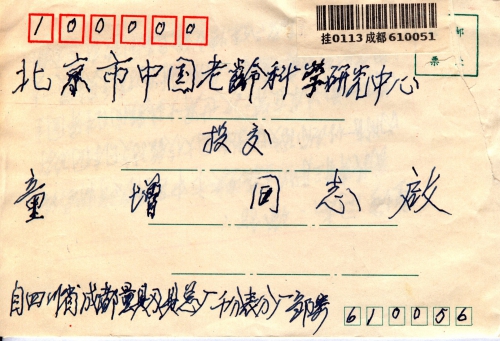 100000
挂0113 成都 610051
邮
票
北京市中国老龄科学研究中心
投交
童增同志啟
自四川省成都量具刃具总厂千分表分厂部
610056